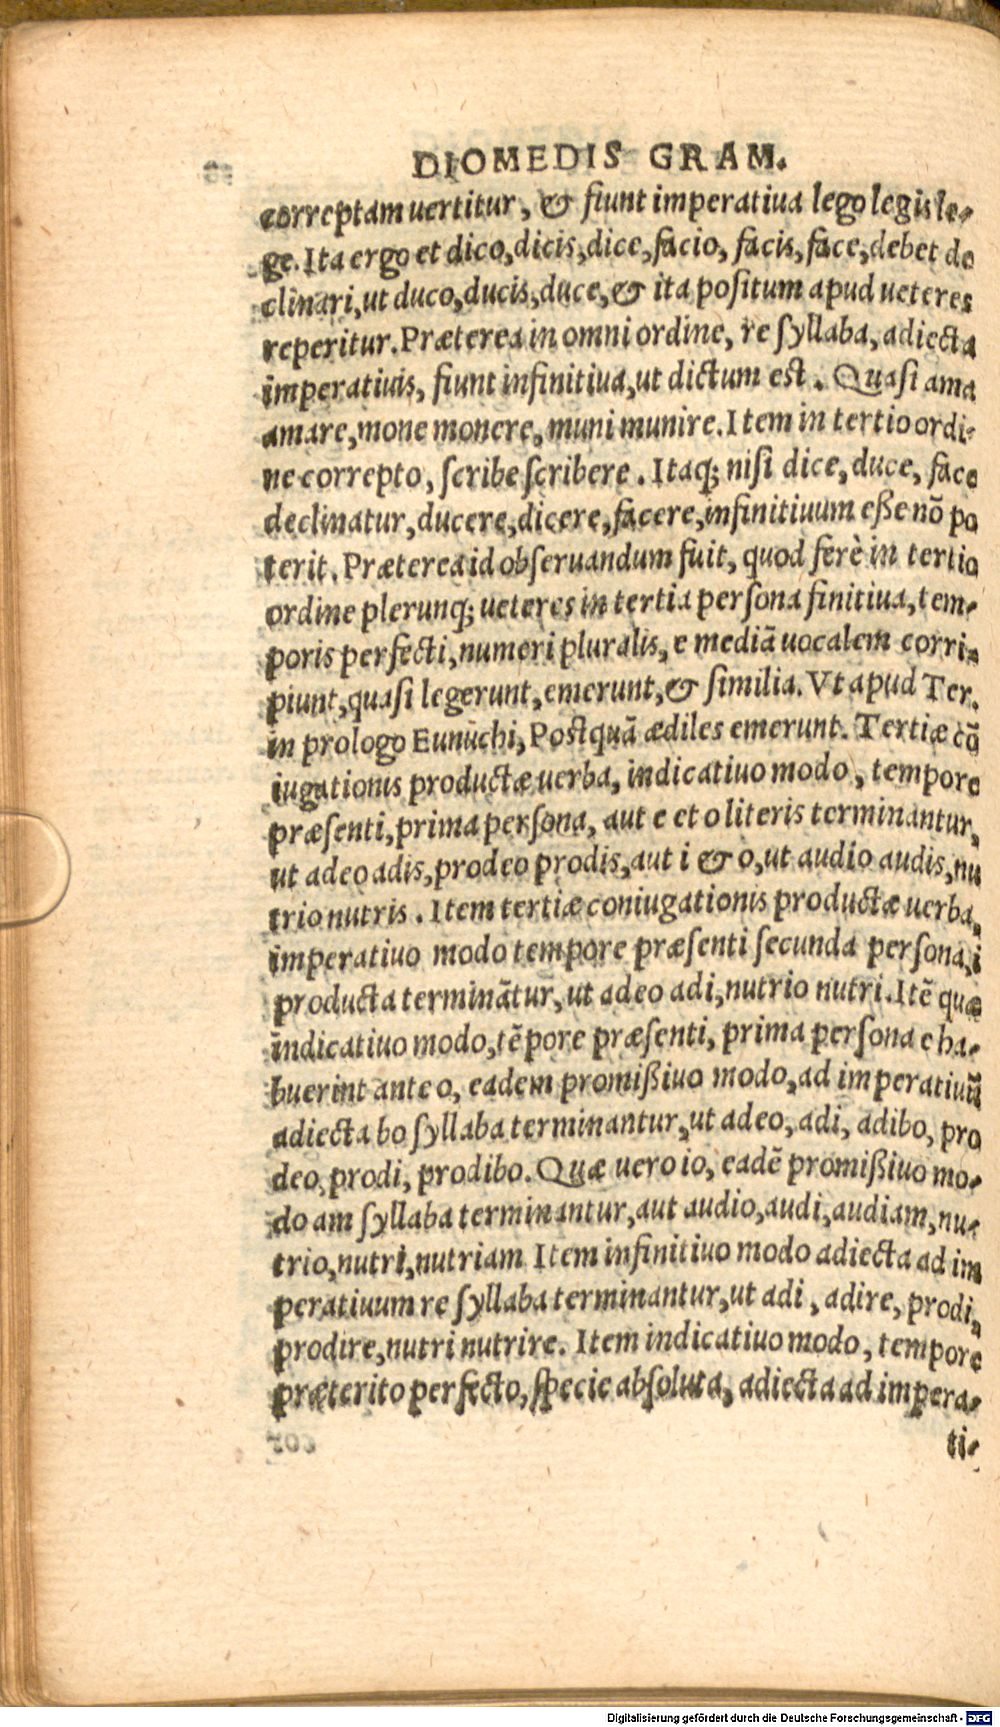 DIOMEDIS GRAM.
correptam uertitur, & fiunt imperatiua lego legis le-
ge. Ita ergo et dico, dicis, dice, facio, facis, face, debet de
clinari, ut duco, ducis, duce, & ita positum apud ueteres
reperitur. Præterea in omni ordine, re syllaba, adiecta
imperatiuis, fiunt infinitiua, ut dictum est. Quasi ama
amare, mone monere, muni munire. Item in tertio ordi-
ne correpto, scribe scribere. Itaq; nisi dice, duce, face
declinatur, ducere, dicere, facere, infinitiuum eße nõ po
terit. Præterea id obseruandum fuit, quod ferè in tertio
ordine plerunq; ueteres in tertia persona finitiua, tem-
poris perfecti, numeri pluralis, e mediã uocalem corri-
piunt, quasi legerunt, emerunt, & similia. Vt apud Ter.
in prologo Eunuchi, Postquã ædiles emerunt. Tertiæ cõ
iugationis productæ uerba, indicatiuo modo, tempore
præsenti, prima persona, aut e et o literis terminantur,
ut adeo adis, prodeo prodis, aut i & o, ut audio audis, nu
trio nutris. Item tertiæ coniugationis productæ uerba,
imperatiuo modo tempore præsenti secunda persona, i
producta terminãtur, ut adeo adi, nutrio nutri. Itẽ quæ
indicatiuo modo, tẽpore præsenti, prima persona e ha-
buerint ante o, eadem promißiuo modo, ad imperatiuũ
adiecta bo syllaba terminantur, ut adeo, adi, adibo, pro
deo, prodi, prodibo. Quæ uero io, eadẽ promißiuo mo-
do am syllaba terminantur, aut audio, audi, audiam, nu-
trio, nutri, nutriam Item infinitiuo modo adiecta ad im
peratiuum re syllaba terminantur, ut adi, adire, prodi,
prodire, nutri nutrire. Item indicatiuo modo, tempore
præterito perfecto, specie absoluta, adiecta ad impera-
ti-
Digitalisierung gefördert durch die Deutsche Forschungsgemeinschaft - DFG